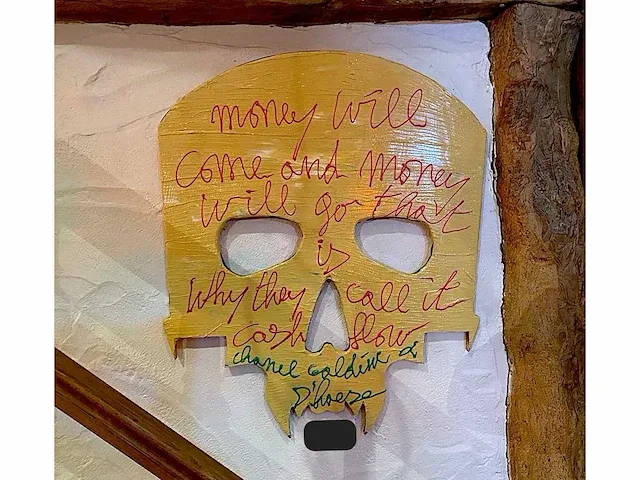 money will
come and money
will go that
is
Why they call it
cash flow
chanel